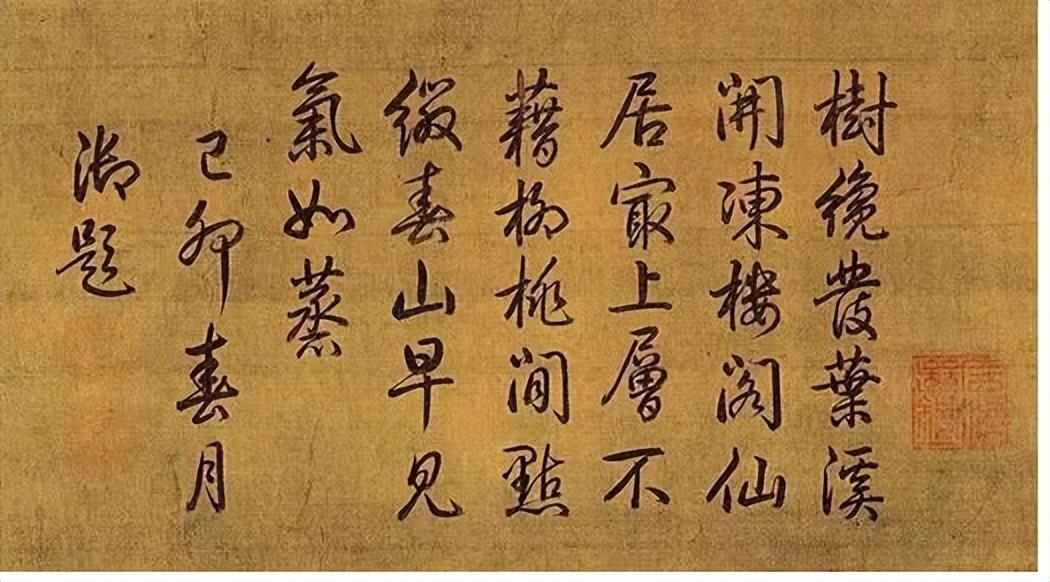 樹纔發葉溪
開凍樓閣仙
居寂上層不
藉柳桃閒點
綴春山早見
氣如蒸
己卯春月
御題